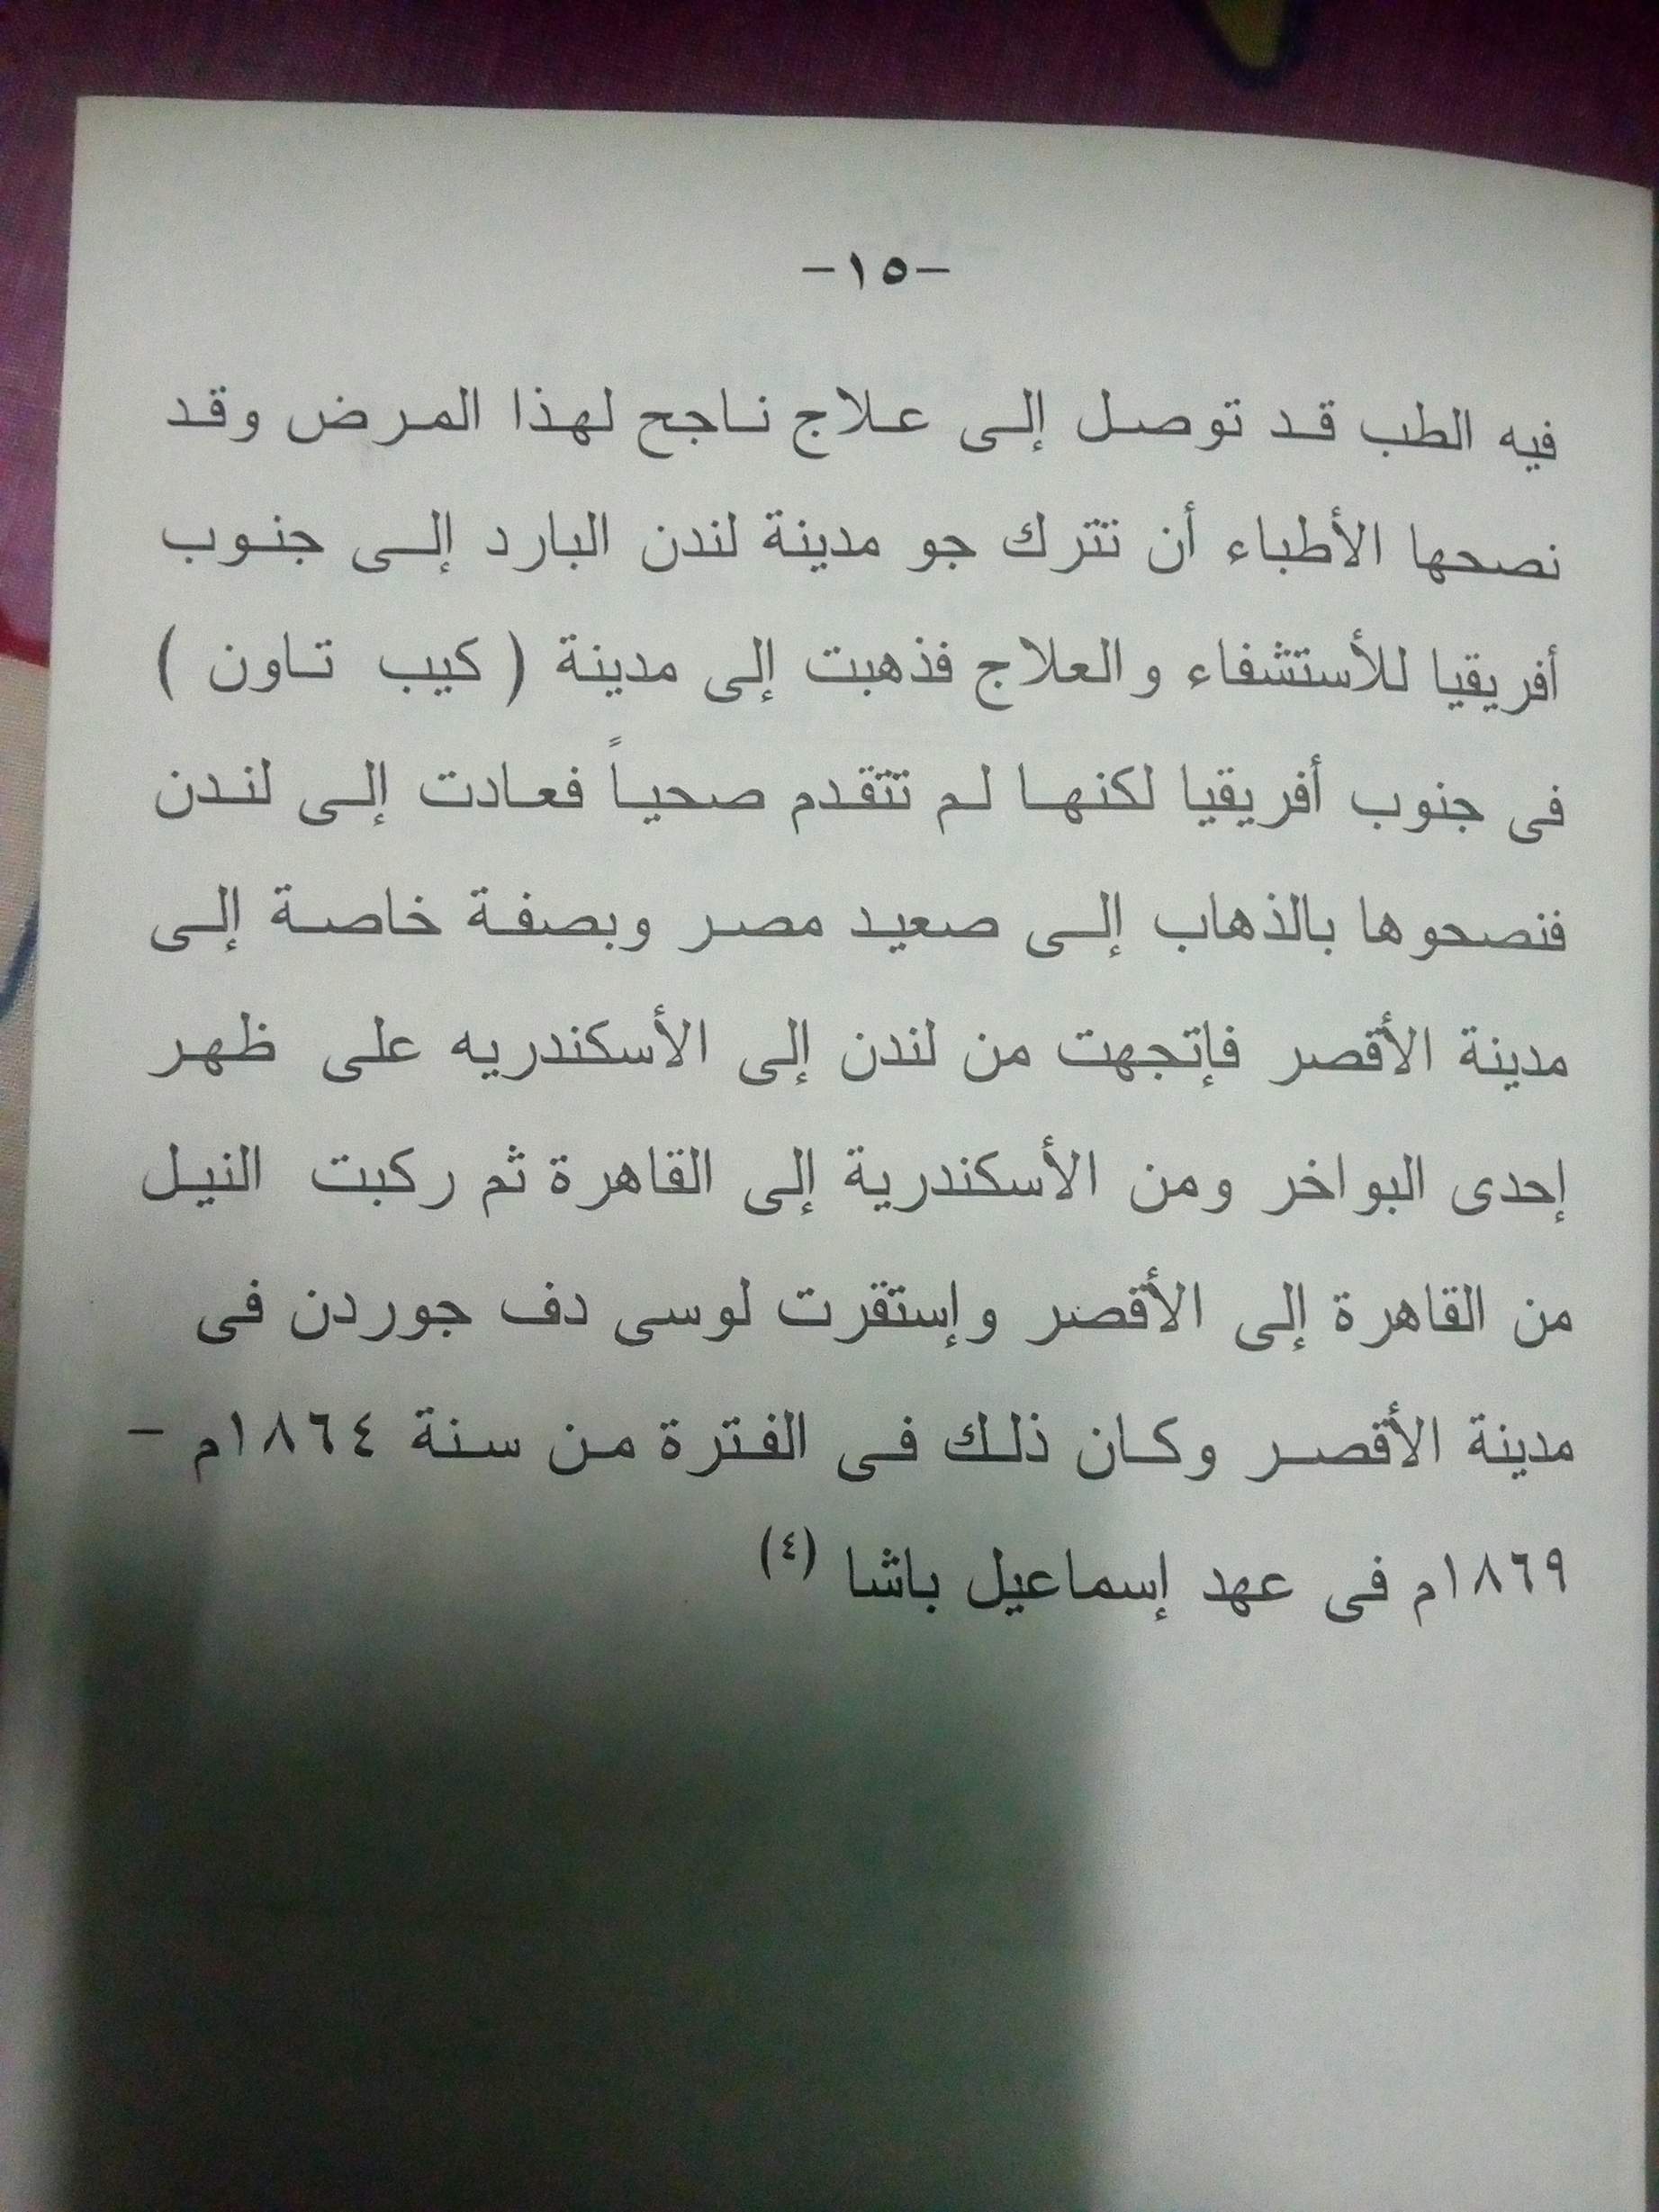 -١٥-
فيه الطب قد توصل إلى علاج ناجح لهذا المرض وقد
نصحها الأطباء أن تترك جو مدينة لندن البارد إلى جنوب
أفريقيا للأستشفاء والعلاج فذهبت إلى مدينة ( كيب تاون )
فى جنوب أفريقيا لكنها لم تتقدم صحياً فعادت إلى لندن
فنصحوها بالذهاب إلى صعيد مصر وبصفة خاصة إلى
مدينة الأقصر فإتجهت من لندن إلى الأسكندريه على ظهر
إحدى البواخر ومن الأسكندرية إلى القاهرة ثم ركبت النيل
من القاهرة إلى الأقصر وإستقرت لوسى دف جوردن فى
مدينة الأقصر وكان ذلك فى الفترة من سنة ١٨٦٤م -
١٨٦٩م فى عهد إسماعيل باشا (٤)